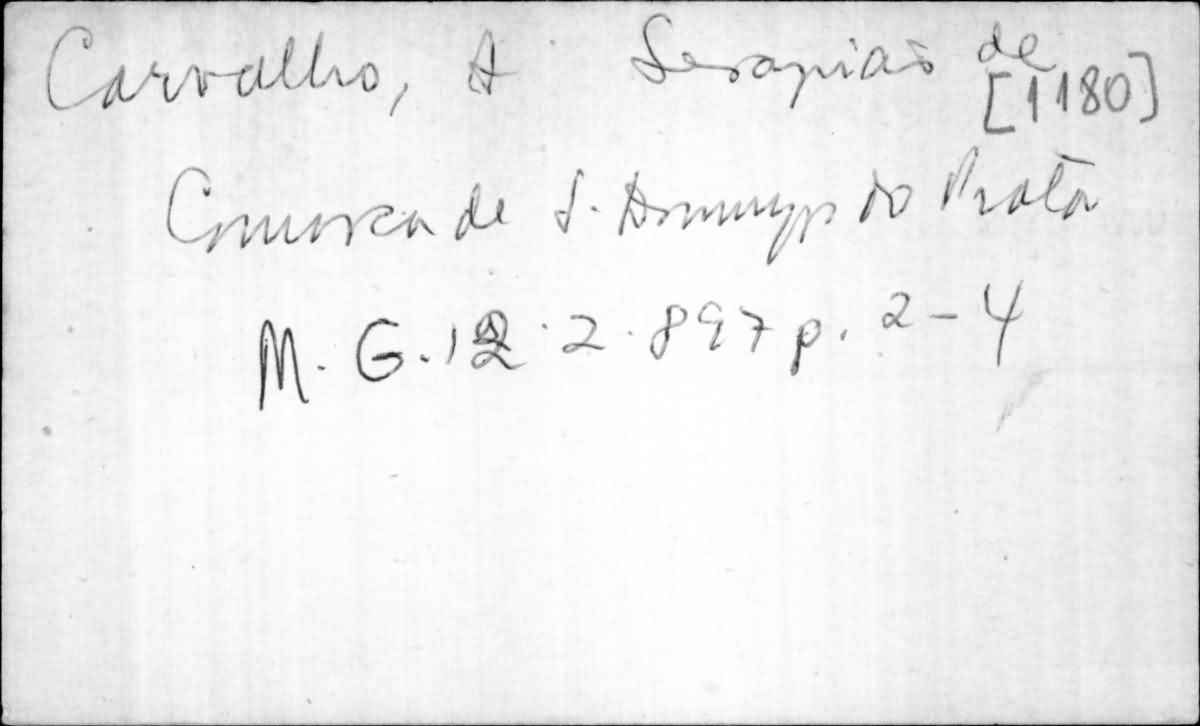 Carvalho, A Serapião de
[1180]
Comarca de S. Domingos do Prata
M. G. 12.2.897 p. 2-4